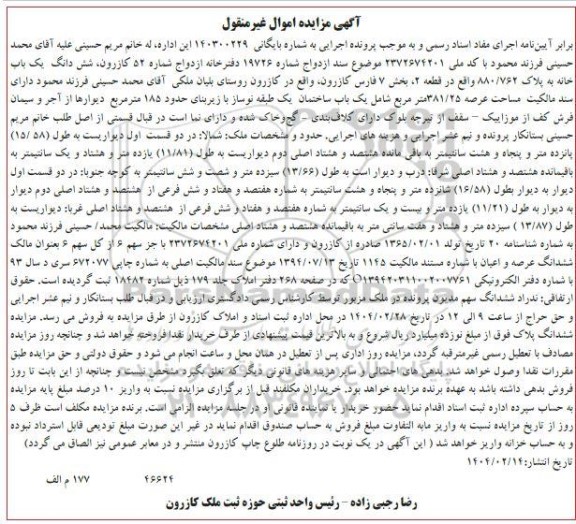 آگهی مزایده اموال غیرمنقول
برابر آیین‌نامه اجرای مفاد اسناد رسمی و به موجب پرونده اجرایی به شماره بایگانی ۱۴۰۳۰۰۲۲۹ این اداره، له خانم مریم حسینی علیه آقای محمد
حسینی فرزند محمود با کد ملی ۲۳۷۲۶۷۴۲۰۱ موضوع سند ازدواج شماره ۱۹۷۲۶ دفترخانه ازدواج شماره ۵۲ کازرون، شش دانگ یک باب
خانه به پلاک ۸۸۰/۷۶۲ واقع در قطعه ۲، بخش ۷ فارس کازرون، واقع در کازرون روستای بلیان ملکی آقای محمد حسینی فرزند محمود دارای
سند مالکیت مساحت عرصه ۳۸۱/۲۵متر مربع شامل یک باب ساختمان یک طبقه نوساز با زیربنای حدود ۱۸۵ مترمربع دیوارها از آجر و سیمان
فرش کف از موزاییک – سقف از تیرچه بلوک دارای کلاف‌بندی – گچ‌وخاک شده و دارای نما است در قبال قسمتی از اصل طلب خانم مریم
حسینی بستانکار پرونده و نیم عشر اجرایی و هزینه های اجرایی. حدود و مشخصات ملک: شمالا: در دو قسمت اول دیواریست به طول (۵۸ /۱۵)
پانزده متر و پنجاه و هشت سانتیمتر به باقی مانده هشتصد و هشتاد اصلی دوم دیواریست به طول (۱۱/۸۱) یازده متر و هشتاد و یک سانتیمتر به
باقیمانده هشتصد و هشتاد اصلی شرقا: درب و دیوار است به طول (۱۳/۶۶) سیزده متر و شصت و شش سانتیمتر به کوچه جنوبا: در دو قسمت اول
دیوار به دیوار بطول (۱۶/۵۸) شانزده متر و پنجاه و هشت سانتیمتر به شماره هفتصد و هفتاد و شش فرعی از هشتصد و هشتاد اصلی دوم دیوار
به دیوار به طول (۱۱/۲۱) یازده متر و بیست و یک سانتیمتر به شماره هفتصد و هفتاد و شش فرعی از هشتصد و هشتاد اصلی غربا: دیواریست به
طول (۱۳/۸۷ ) سیزده متر و هشتاد و هفت سانتی متر به باقیمانده هشتصد و هشتاد اصلی مشخصات مالکیت: مالکیت محمد/ حسینی فرزند محمود
به شماره شناسنامه ۲۰ تاریخ تولد ۱۳۶۵/۰۲/۰۱ صادره از کازرون و دارای شماره ملی ۲۳۷۲۶۷۴۲۰۱ با جز سهم ۶ از کل سهم ۶ بعنوان مالک
ششدانگ عرصه و اعیان با شماره مستند مالکیت ۱۱۴۵ تاریخ ۱۳۹۴/۰۷/۱۳ موضوع سند مالکیت اصلی به شماره چاپی ۶۷۲۰۷۷ سری د سال ۹۳
با شماره دفتر الکترونیکی ۱۳۹۴۲۰۳۱۱۰۰۲۰۰۷۷۶۱ که در صفحه ۲۶۸ دفتر املاک جلد ۱۷۹ ذیل شماره ۱۸۴۸۲ ثبت گردیده است. حقوق
ارتفاقی: ندراد ششدانگ سهم مدیون پرونده در ملک مزبور توسط کارشناس رسمی دادگستری ارزیابی و در قبال طلب بستانکار و نیم عشر اجرایی
و حق حراج از ساعت ۹ الی ۱۲ در تاریخ ۱۴۰۴/۰۲/۲۸ در محل اداره ثبت اسناد و املاک کازرون از طرق مزایده به فروش می رسد. مزایده
ششدانگ پلاک فوق از مبلغ نوزده میلیارد ریال شروع و به بالاترین قیمت پیشنهادی از طرف خریدار نقدا فروخته خواهد شد و چنانچه روز مزایده
مصادف با تعطیل رسمی غیرمترقبه گردد، مزایده روز اداری پس از تعطیل در همان محل و ساعت انجام می شود و حقوق دولتی و حق مزایده طبق
مقررات نقدا وصول خواهد شد. بدهی های احتمالی و سایر هزینه های قانونی دیگر که تعلق بگیرد مشخص نیست و چنانچه از این بابت تا روز
فروش بدهی داشته باشد به عهده برنده مزایده خواهد بود. خریداران مکلفند قبل از برگزاری مزایده نسبت به واریز ۱۰ درصد مبلغ پایه مزایده
به حساب سپرده اداره ثبت اسناد اقدام نماید. حضور خریدار یا نماینده قانونی او در جلسه مزایده الزامی است. برنده مزایده مکلف است ظرف ۵
روز از تاریخ مزایده نسبت به واریز مابه التفاوت مبلغ فروش به حساب صندوق اقدام نماید در غیر این صورت مبلغ تودیعی قابل استرداد نبوده
و به حساب خزانه واریز خواهد شد ( این آگهی در یک نوبت در روزنامه طلوع چاپ کازرون منتشر و در معابر عمومی نیز الصاق می گردد)
تاریخ انتشار: ۱۴۰۴/۰۲/۱۴
۴۶۶۲۴ ۱۷۷ م الف
رضا رجبی زاده – رئیس واحد ثبتی حوزه ثبت ملک کازرون